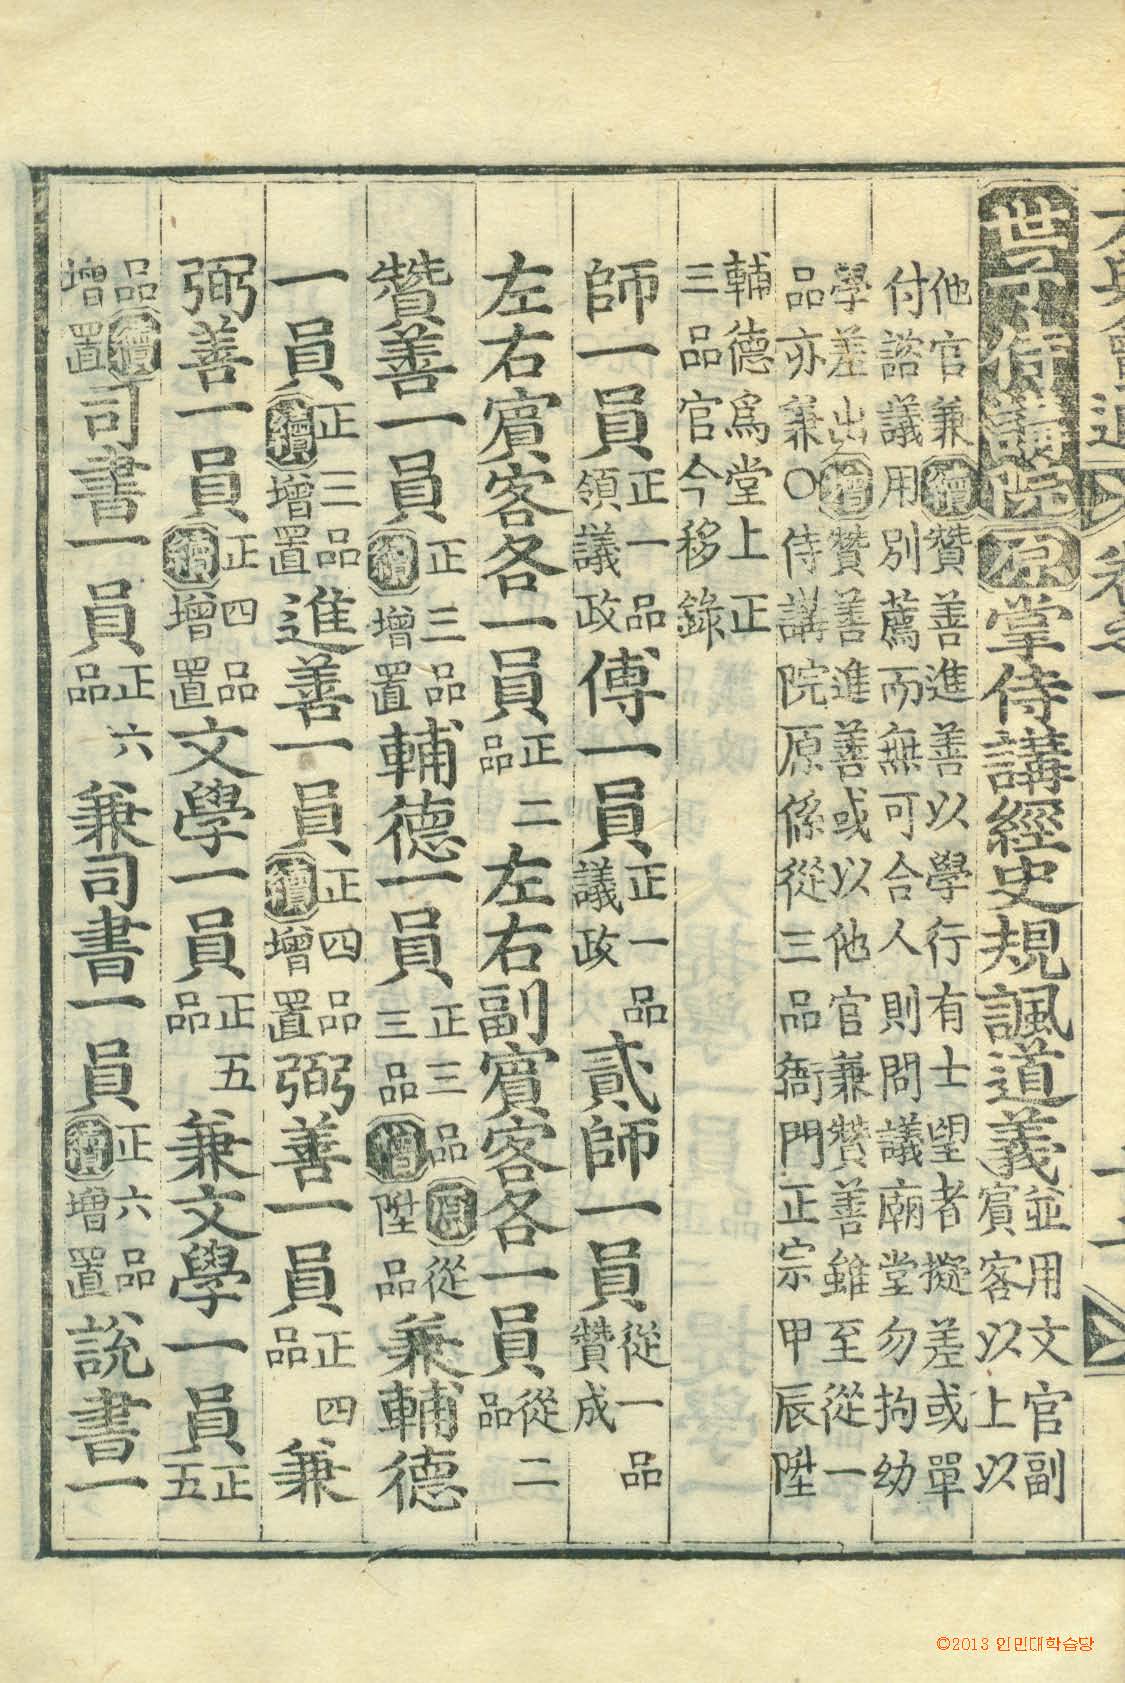 大典會通 卷之一 十二
世子侍講院 原 掌侍講經史規諷道義 並用文官副
賓客以上以
他官兼 續 贊善進善以學行有士望者擬差或單
付諮議用別薦而無可合人則問議廟堂勿拘幼
學差出 增 贊善進善或以他官兼贊善雖至從一
品亦兼○侍講院原係從三品衙門正宗甲辰陞
輔德爲堂上正
三品官今移錄
師一員 正一品領議政 傅一員 正一品議政 貳師一員 從一品贊成
左右賓客各一員 正二品 左右副賓客各一員 從二品
贊善一員 正三品 續 增置 輔德一員 正三品 原 從三品 增 陞品 兼輔德
一員 正三品 續 增置 進善一員 正四品 續 增置 弼善一員 正四品 兼
弼善一員 正四品 續 增置 文學一員 正五品 兼文學一員 正五
品 續 增置 司書一員 正六品 兼司書一員 正六品 續 增置 說書一
©2013 인민대학습당